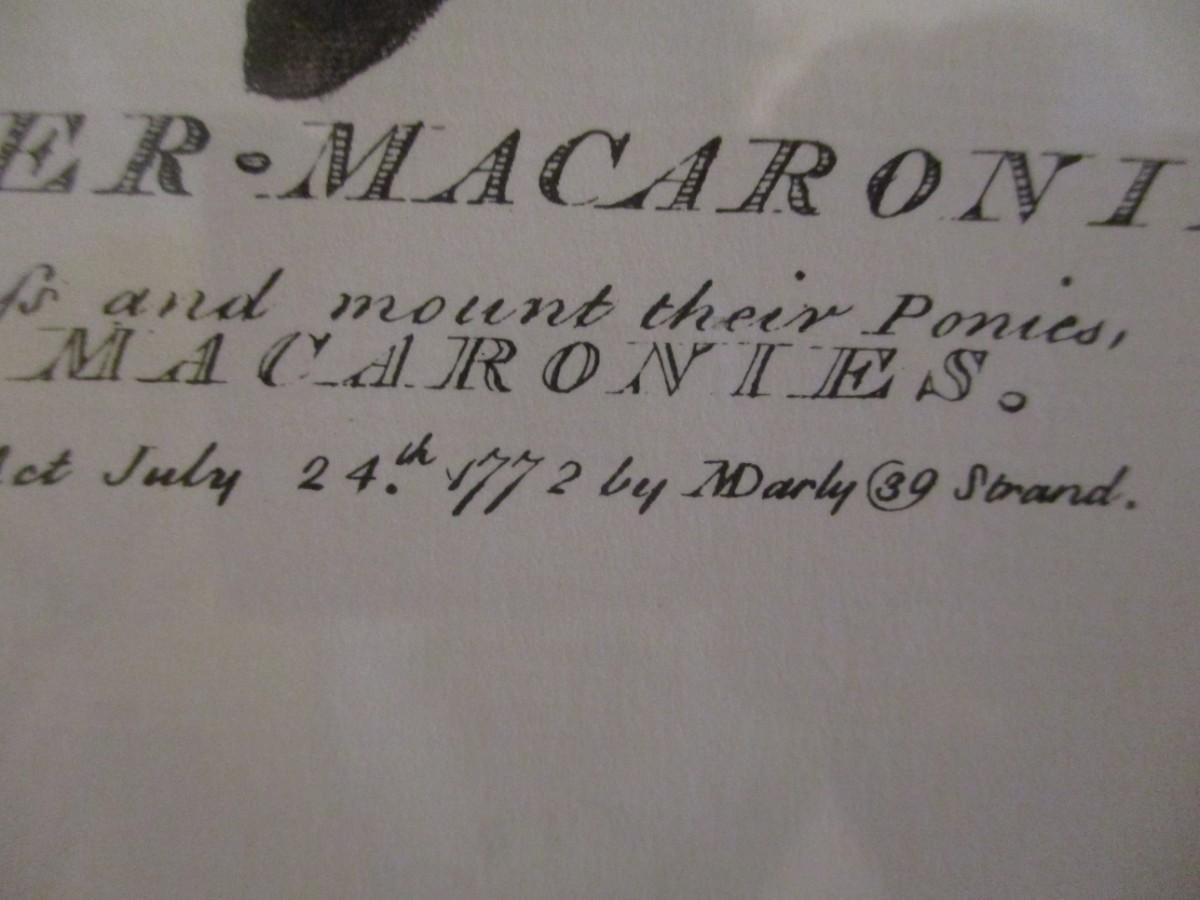 ER·MACARONI
ſs and mount their Ponies,
MACARONIES.
Act July 24.th 1772 by MDarly (39) Strand.